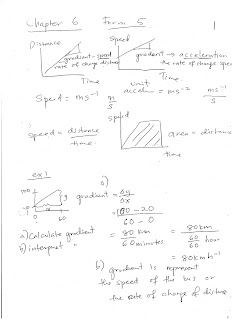 Chapter 6 Form 5
1
Distance
Speed
gradient = speed
rate of change distance
gradient → acceleration
the rate of change speed
Time
Time
unit
Speed = ms⁻¹ m/s
accel = ms⁻² ms⁻¹/s
speed
speed = distance/time
area = distance
time
ex1
a)
100
20
0
60
gradient = Δy/Δx
= 100 - 20/60 - 0
a) Calculate gradient
b) interpret "
= 80 km/60 minutes = 80 km/60/60 hour
= 80 km h⁻¹
b) gradient is represent
the speed of the bus or
the rate of change of distance